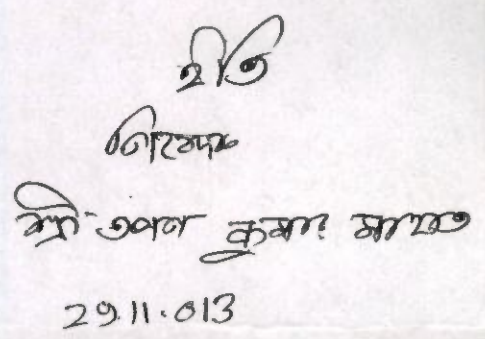 ইতি
নিবেদক
শ্রী তপন কুমার মাহাত
29.11.013